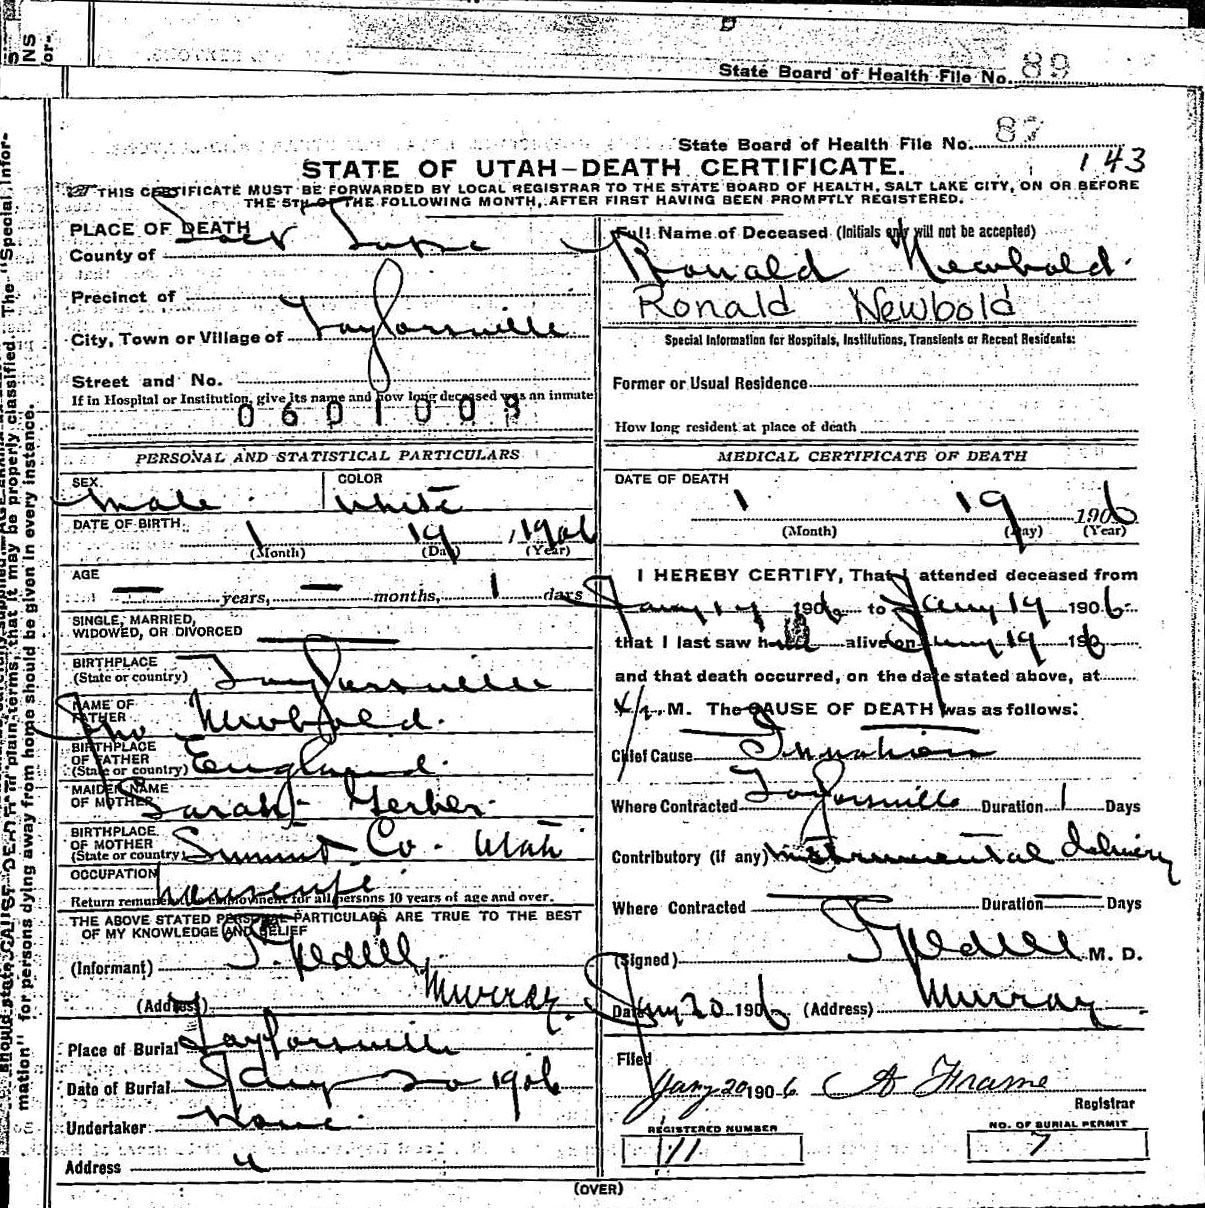 State Board of Health File No. 89
State Board of Health File No. 87
143
STATE OF UTAH—DEATH CERTIFICATE.
THIS CERTIFICATE MUST BE FORWARDED BY LOCAL REGISTRAR TO THE STATE BOARD OF HEALTH, SALT LAKE CITY, ON OR BEFORE
THE 5TH OF THE FOLLOWING MONTH, AFTER FIRST HAVING BEEN PROMPTLY REGISTERED.
PLACE OF DEATH
County of Salt Lake
Precinct of
City, Town or Village of Taylorsville
Street and No.
If in Hospital or Institution, give its name and how long deceased was an inmate
0601009
PERSONAL AND STATISTICAL PARTICULARS
SEX male COLOR White
DATE OF BIRTH 1 19 1906
(Month) (Day) (Year)
AGE — years, — months, 1 days
SINGLE, MARRIED,
WIDOWED, OR DIVORCED —
BIRTHPLACE
(State or country) Taylorsville
NAME OF
FATHER Jno Newbold.
BIRTHPLACE
OF FATHER
(State or country) England.
MAIDEN NAME
OF MOTHER Sarah Gerber
BIRTHPLACE
OF MOTHER
(State or country) Summit Co. Utah
OCCUPATION housewife
Return remunerative employment for all persons 10 years of age and over.
THE ABOVE STATED PERSONAL PARTICULARS ARE TRUE TO THE BEST
OF MY KNOWLEDGE AND BELIEF
(Informant)
(Address) Murray.
Place of Burial Taylorsville
Date of Burial Jany 20 1906
Undertaker None
Address "
Full Name of Deceased (Initials only will not be accepted)
Ronald Newbold.
Ronald Newbold
Special Information for Hospitals, Institutions, Transients or Recent Residents:
Former or Usual Residence
How long resident at place of death
MEDICAL CERTIFICATE OF DEATH
DATE OF DEATH
1 19 1906
(Month) (Day) (Year)
I HEREBY CERTIFY, That I attended deceased from
Jany 19 1906 to Jany 19 1906
that I last saw h alive on Jany 19 1906
and that death occurred, on the date stated above, at
M. The CAUSE OF DEATH was as follows:
Chief Cause Inanition
Where Contracted Taylorsville Duration 1 Days
Contributory (if any) Instrumental delivery
Where Contracted — Duration — Days
(Signed) M. D.
Date Jany 20 1906 (Address) Murray
Filed
Jany 20 1906 A Frame
Registrar
REGISTERED NUMBER
11
NO. OF BURIAL PERMIT
7
(OVER)